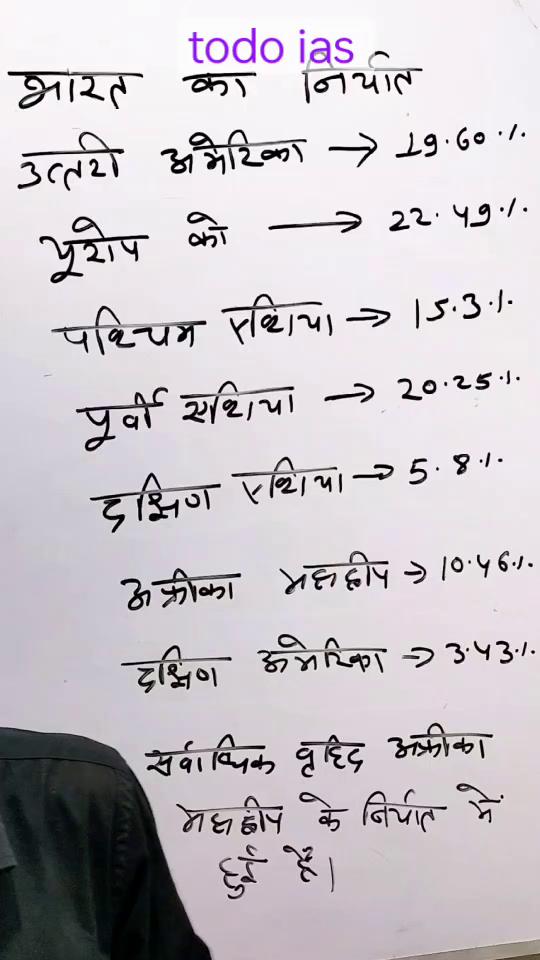 todo ias
भारत का निर्यात
उत्तरी अमेरिका → 19.60%
यूरोप को → 22.49%
पश्चिम एशिया → 15.3%
पूर्वी एशिया → 20.25%
दक्षिण एशिया → 5.8%
अफ्रीका महाद्वीप → 10.46%
दक्षिण अमेरिका → 3.43%
सर्वाधिक वृद्धि अफ्रीका
महाद्वीप के निर्यात में
हुई है।